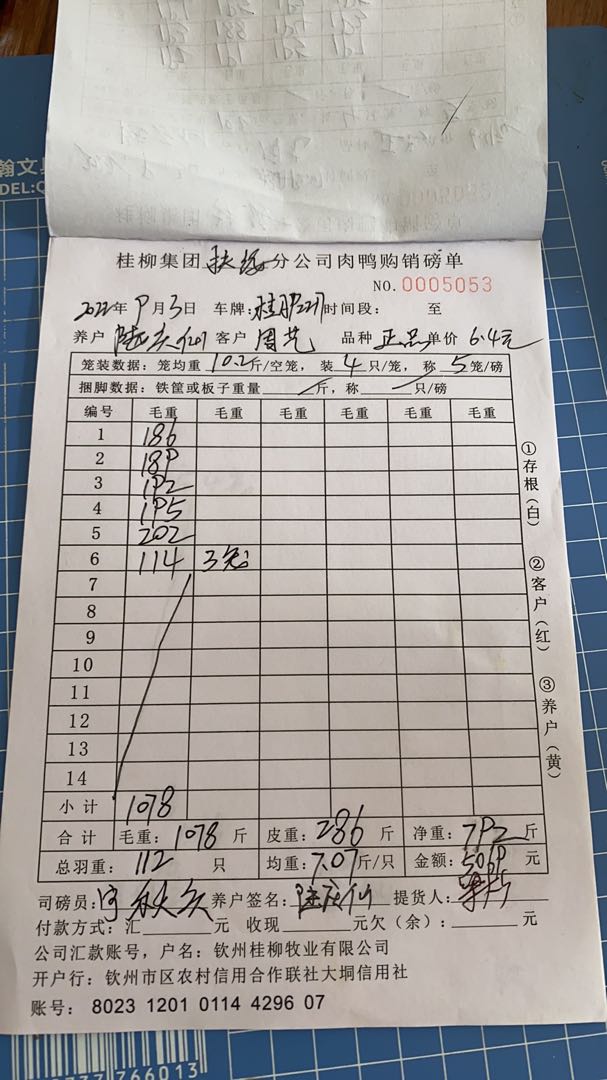 瀚文具
DEL:C
桂柳集团 扶绥 分公司肉鸭购销磅单
NO.0005053
2022年9月3日 车牌: 时间段: 至
养户 客户 周艺 品种 正品 单价 6.4元
笼装数据: 笼均重 10.2 斤/空笼, 装 4 只/笼, 称 5 笼/磅
捆脚数据: 铁筐或板子重量 斤, 称 只/磅
编号 毛重 毛重 毛重 毛重 毛重 毛重
1 186
2 189
3 192
4 195
5 202
6 114 3笼
7
8
9
10
11
12
13
14
小计 1078
合计 毛重: 1078 斤 皮重: 286 斤 净重: 792 斤
总羽重: 112 只 均重: 7.07 斤/只 金额: 5069 元
①存根(白) ②客户(红) ③养户(黄)
司磅员: 养户签名: 提货人:
付款方式: 汇 元 收现 元欠(余): 元
公司汇款账号, 户名: 钦州桂柳牧业有限公司
开户行: 钦州市区农村信用合作联社大垌信用社
账号: 8023 1201 0114 4296 07